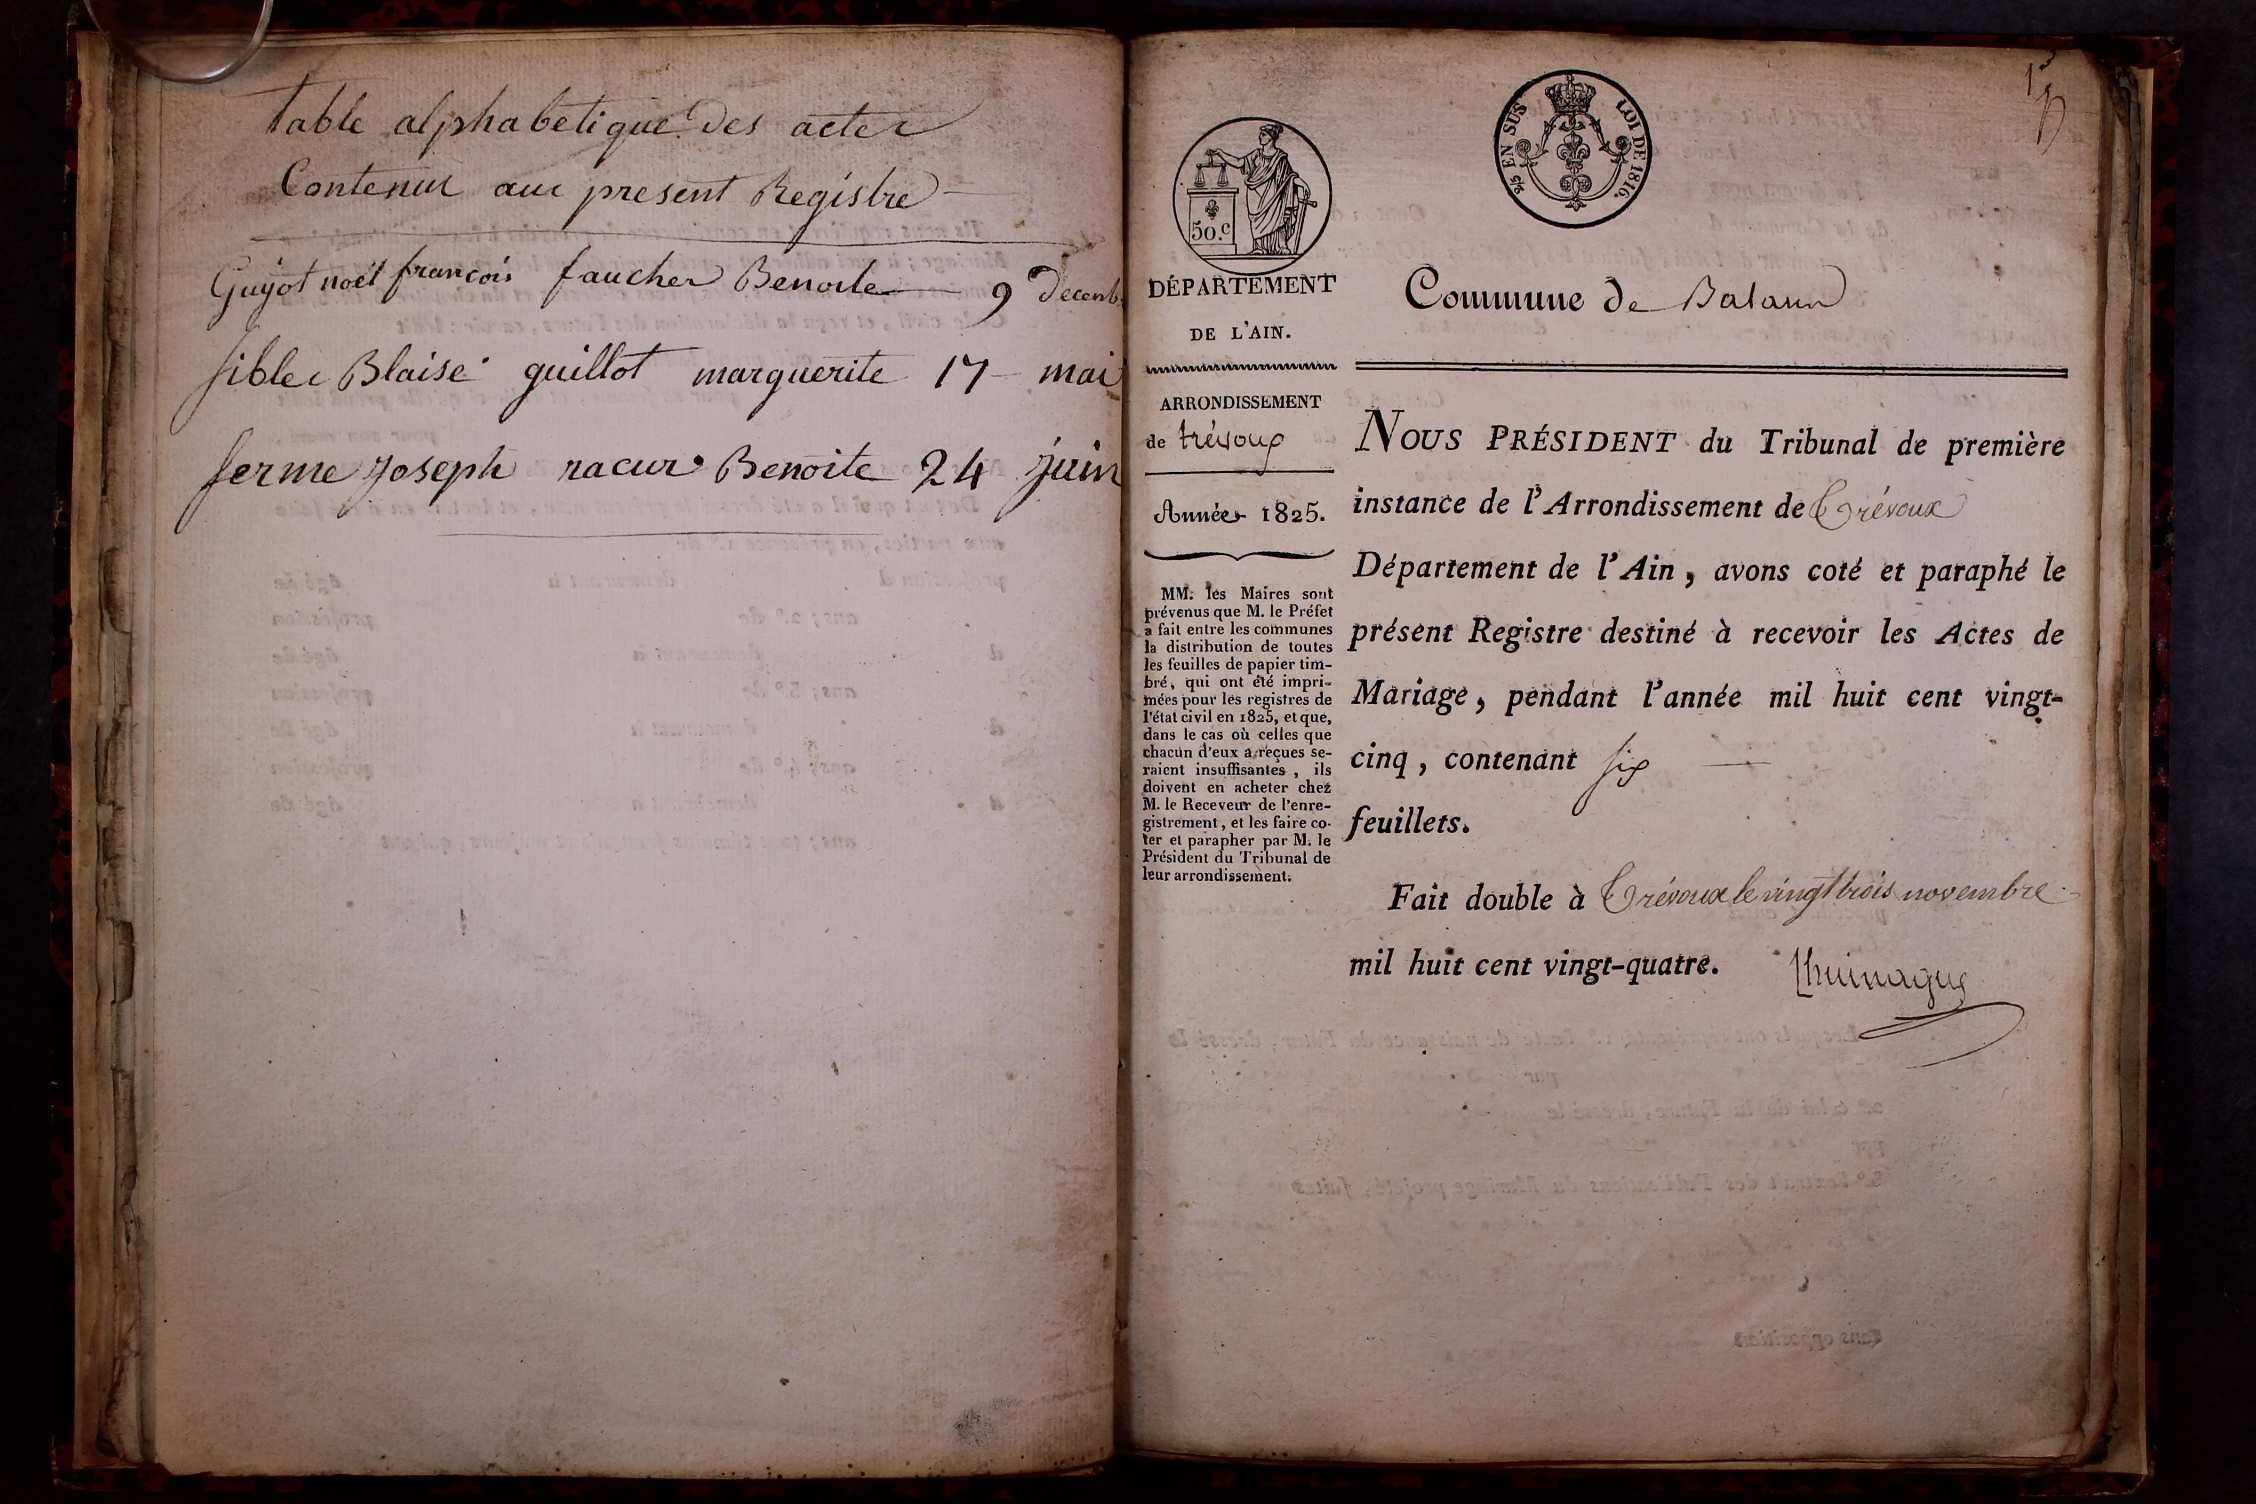 table alphabetique des actes
Contenus au present Registre
Guyot noël françois faucher Benoite 9 Decemb
sibler Blaise guillot marguerite 17 mai
ferme joseph racur Benoite 24 juin
50.c
DÉPARTEMENT
DE L'AIN.
ARRONDISSEMENT
de trévoux
Année 1825.
MM. les Maires sont
prévenus que M. le Préfet
a fait entre les communes
la distribution de toutes
les feuilles de papier tim-
bré, qui ont été impri-
mées pour les registres de
l'état civil en 1825, et que,
dans le cas où celles que
chacun d'eux a reçues se-
raient insuffisantes, ils
doivent en acheter chez
M. le Receveur de l'enre-
gistrement, et les faire co-
ter et parapher par M. le
Président du Tribunal de
leur arrondissement.
2/5 EN SUS LOI DE 1816.
Commune de Balaun
NOUS PRÉSIDENT du Tribunal de première
instance de l'Arrondissement de Trévoux
Département de l'Ain, avons coté et paraphé le
présent Registre destiné à recevoir les Actes de
Mariage, pendant l'année mil huit cent vingt-
cinq, contenant six
feuillets.
Fait double à Trévoux le vingt trois novembre
mil huit cent vingt-quatre.